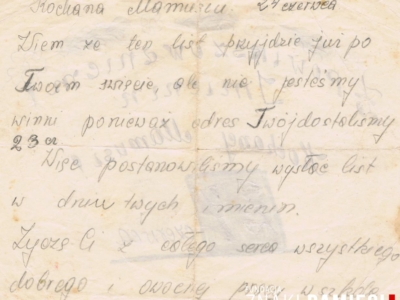 Kochana Mamusiu. 24 czerwca
Wiem że ten list przyjdzie już po
Twoim święcie, ale nie jesteśmy
winni ponieważ adres Twój dostaliśmy
23 cz
Więc postanowiliśmy wysłać list
w dniu twych imienin.
Życzę Ci z całego serca wszystkiego
dobrego i owocnej pracy w szkole